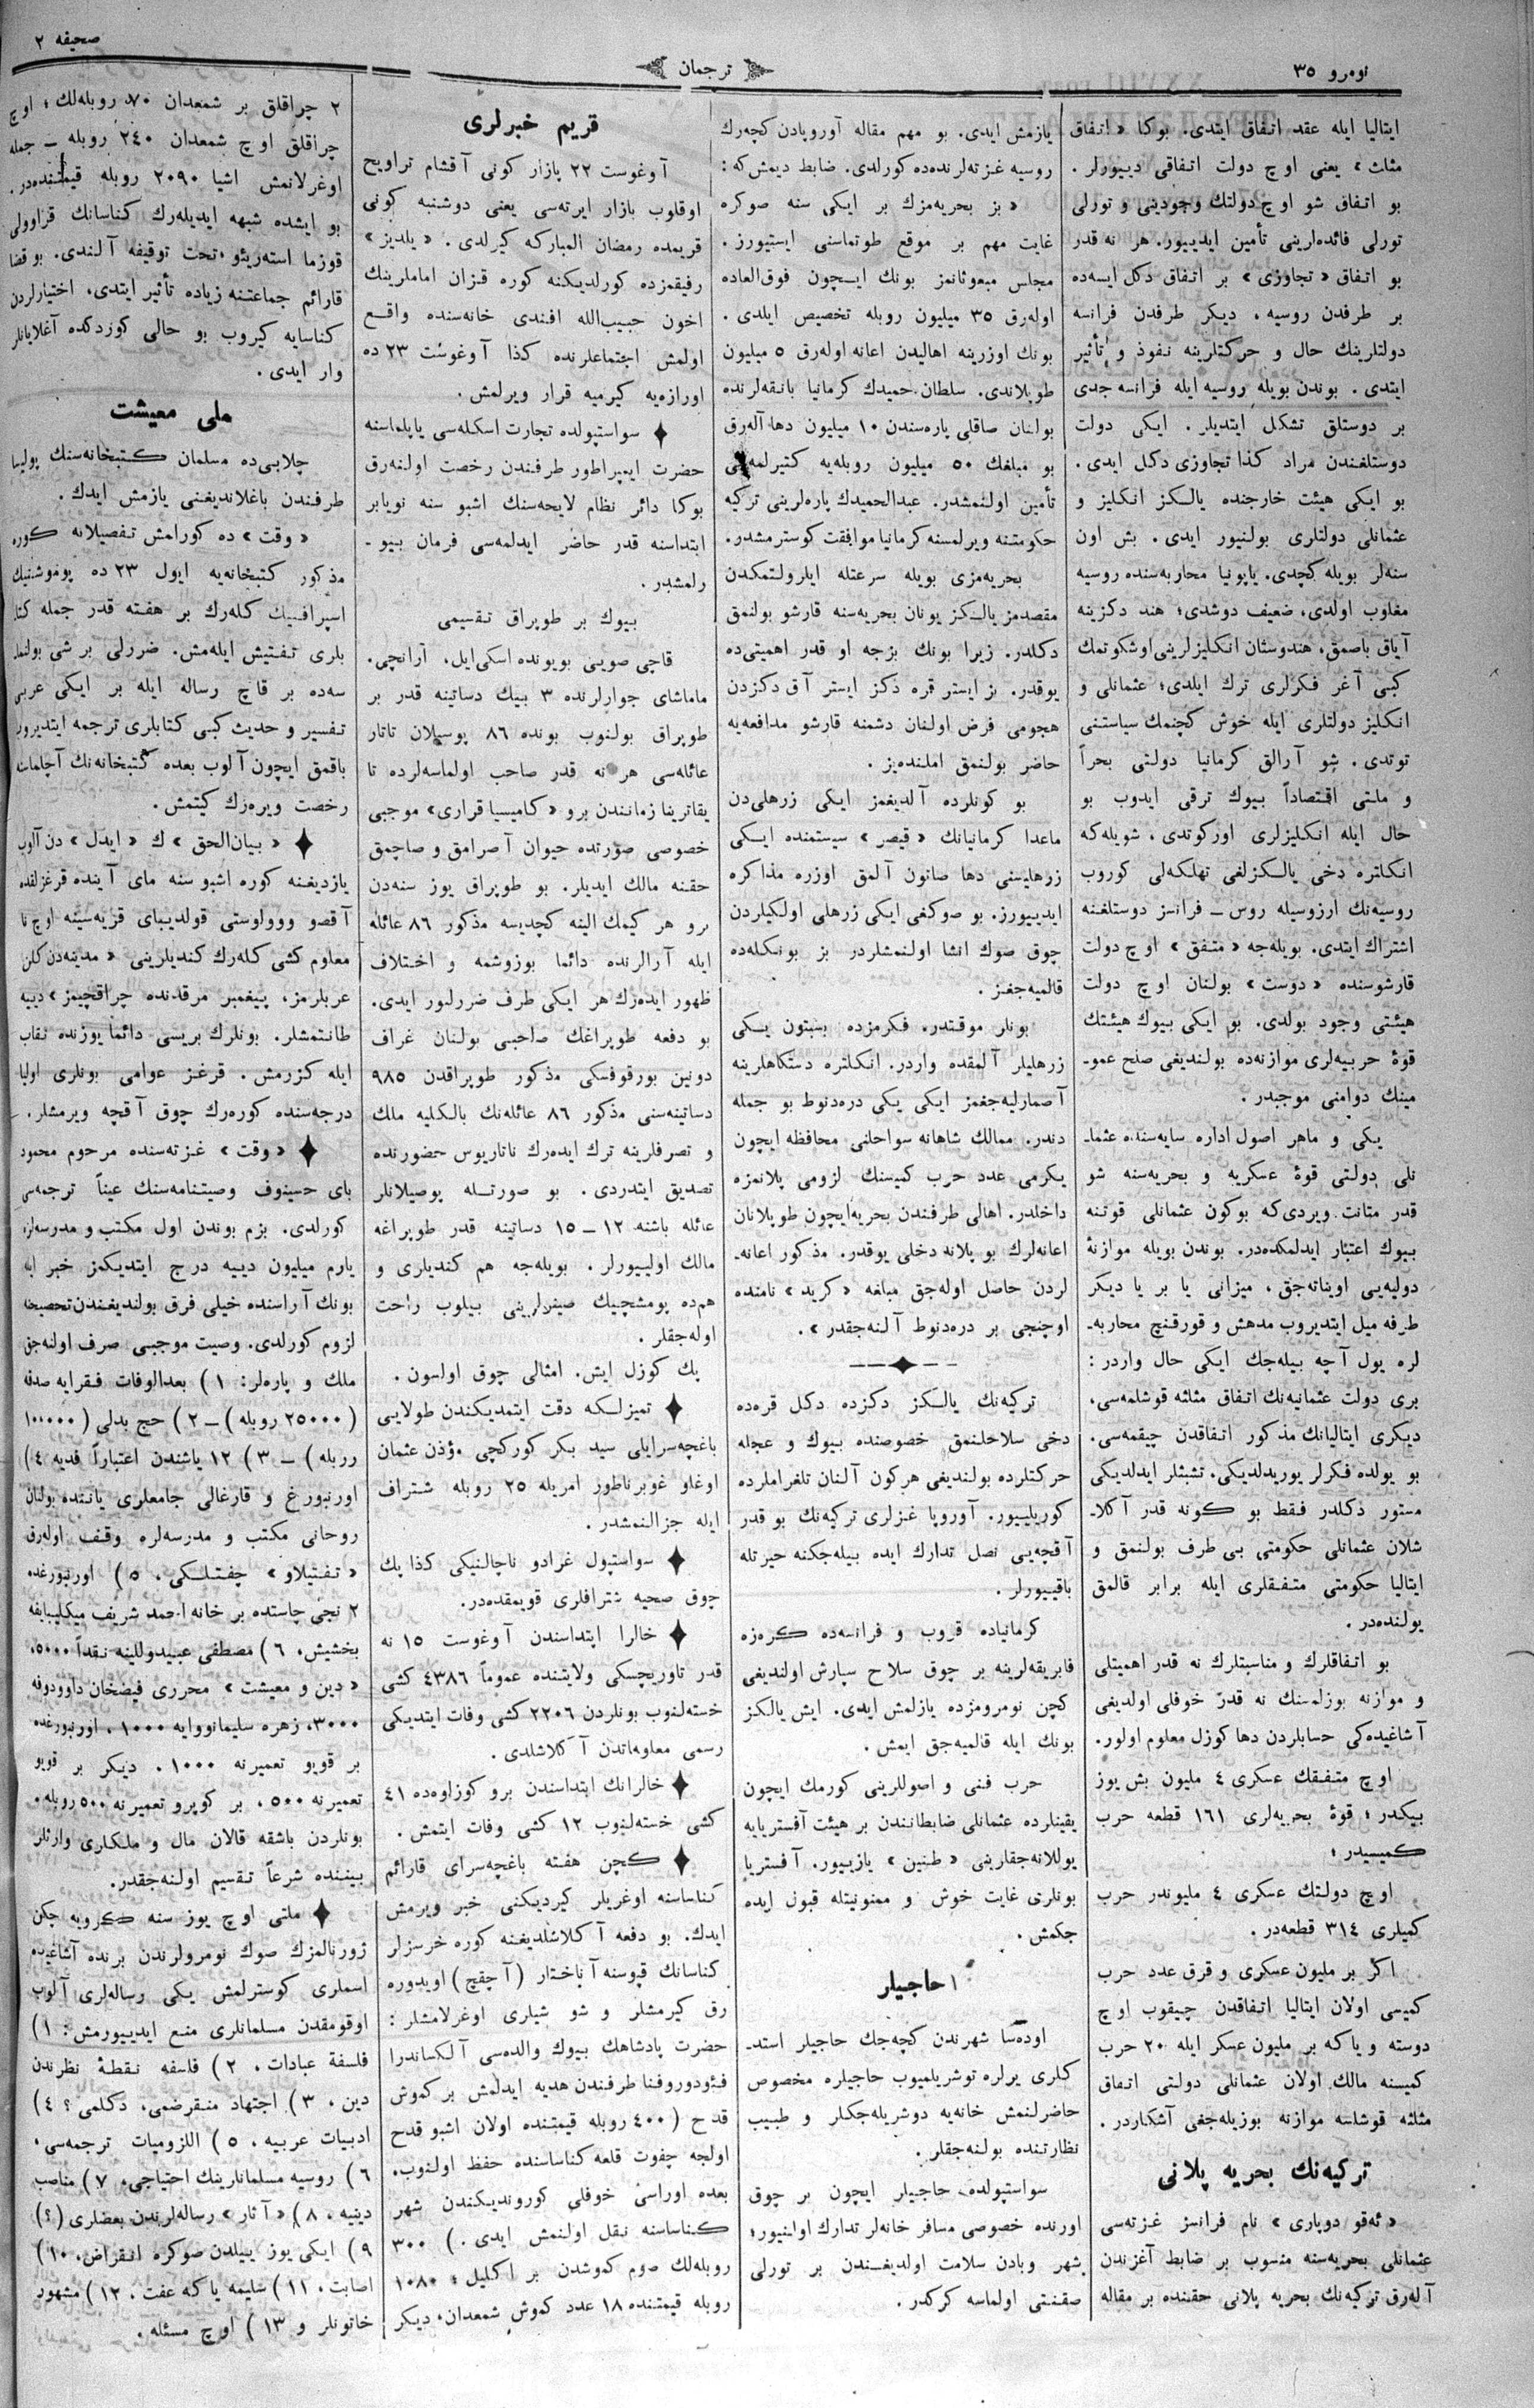 نومرو ٣٥
ترجمان
صحیفه ٢
ایتالیا ایله عقد اتفاق ایتدی. بوكا «اتفاق
مثلث» یعنی اوچ دولت اتفاقی دییورلر.
بو اتفاق شو اوچ دولتك وجودینی و تورلی
تورلی فائده‌لرینی تأمین ایدییور. هر نه قدر
بو اتفاق «تجاوزی» بر اتفاق دكل ایسه‌ده
بر طرفدن روسیه، دیكر طرفدن فرانسه
دولتلرینك حال و حركتلرینه نفوذ و تأثیر
ایتدی. بوندن بویله روسیه ایله فرانسه جدی
بر دوستلق تشكل ایتدیلر. ایكی دولت
دوستلغندن مراد كذا تجاوزی دكل ایدی.
بو ایكی هیئت خارجنده یالكز انكلیز و
عثمانلی دولتلری بولنیور ایدی. بش اون
سنه‌لر بویله كچدی. یاپونیا محاربه‌سنده روسیه
مغلوب اولدی، ضعیف دوشدی؛ هند دكزینه
آیاق باصمق، هندوستان انكلیزلرینی اوشكوتمك
كبی آغر فكرلری ترك ایلدی؛ عثمانلی و
انكلیز دولتلری ایله خوش كچنمك سیاستنی
توتدی. شو آرالق كرمانیا دولتی بحراً
و ملتی اقتصاداً بیوك ترقی ایدوب بو
حال ایله انكلیزلری اوركوتدی، شویله‌كه
انكلتره دخی یالكزلغی تهلكه‌لی كوروب
روسیه‌نك ارزوسیله روس ــ فرانسز دوستلغنه
اشتراك ایتدی. بویله‌جه «متفق» اوچ دولت
قارشوسنده «دوست» بولنان اوچ دولت
هیئتی وجود بولدی. بو ایكی بیوك هیئتك
قوهٔ حربیه‌لری موازنه‌ده بولندیغی صلح عمو-
مینك دوامنی موجبدر.
یكی و ماهر اصول اداره سایه‌سنده عثما-
نلی دولتی قوهٔ عسكریه و بحریه‌سنه شو
قدر متانت ویردی‌كه بوكون عثمانلی قوتنه
بیوك اعتبار ایدلمكده‌در. بوندن بویله موازنهٔ
دولیه‌یی اویناته‌جق، میزانی یا بر یا دیكر
طرفه میل ایتدیروب مدهش و قورقنچ محاربه-
لره یول آچه بیله‌جك ایكی حال واردر:
بری دولت عثمانیه‌نك اتفاق مثلثه قوشلمه‌سی،
دیكری ایتالیانك مذكور اتفاقدن چیقمه‌سی.
بو یولده فكرلر یوریدلدیكی، تشبثلر ایدلدیكی
مستور دكلدر فقط بو كونه قدر آكلا-
شلان عثمانلی حكومتی بی طرف بولنمق و
ایتالیا حكومتی متفقلری ایله برابر قالمق
یولنده‌در.
بو اتفاقلرك و مناسبتلرك نه قدر اهمیتلی
و موازنه بوزلمسنك نه قدر خوفلی اولدیغی
آشاغیده‌كی حسابلردن دها كوزل معلوم اولور.
اوچ متفقك عسكری ٤ ملیون بش یوز
بیكدر؛ قوهٔ بحریه‌لری ١٦١ قطعه حرب
كمیسیدر؛
اوچ دولتك عسكری ٤ ملیوندر حرب
كمیلری ٣١٤ قطعه‌در.
اكر بر ملیون عسكری و قرق عدد حرب
كمیسی اولان ایتالیا اتفاقدن چیقوب اوچ
دوسته و یاكه بر ملیون عسكر ایله ٢٠ حرب
كمیسنه مالك اولان عثمانلی دولتی اتفاق
مثلثه قوشلسه موازنه بوزیله‌جغی آشكاردر.
تركیه‌نك بحریه پلانی
«ئه‌قو دوپاری» نام فرانسز غزته‌سی
عثمانلی بحریه‌سنه منسوب بر ضابط آغزندن
آله‌رق تركیه‌نك بحریه پلانی حقنده بر مقاله
یازمش ایدی. بو مهم مقاله آوروپادن كچه‌رك
روسیه غزته‌لرنده‌ده كورلدی. ضابط دیمش‌كه:
«بز بحریه‌مزك بر ایكی سنه صوكره
غایت مهم بر موقع طوتماسنی ایستیورز.
مجلس مبعوثانمز بونك ایچون فوق‌العاده
اوله‌رق ٣٥ میلیون روبله تخصیص ایلدی.
بونك اوزرینه اهالیدن اعانه اوله‌رق ٥ میلیون
طوپلاندی. سلطان حمیدك كرمانیا بانقه‌لرنده
بولنان صاقلی پاره‌سندن ١٠ میلیون دها آله‌رق
بو مبلغك ٥٠ میلیون روبله‌یه كتیرلمه‌سی
تأمین اولنمشدر. عبدالحمیدك پاره‌لرینی تركیه
حكومتنه ویرلمسنه كرمانیا موافقت كوسترمشدر.
بحریه‌مزی بویله سرعتله ایلرولتمكدن
مقصدمز یالكز یونان بحریه‌سنه قارشو بولنمق
دكلدر. زیرا بونك بزجه او قدر اهمیتی‌ده
یوقدر. بز ایستر قره دكز ایستر آق دكزدن
هجومی فرض اولنان دشمنه قارشو مدافعه‌یه
حاضر بولنمق املنده‌یز.
بو كونلرده آلدیغمز ایكی زرهلی‌دن
ماعدا كرمانیانك «قیصر» سیستمنده ایكی
زرهلیسنی دها صاتون آلمق اوزره مذاكره
ایدییورز. بو صوكغی ایكی زرهلی اولكیلردن
چوق صوك انشا اولنمشلردر بز بونكله‌ده
قالمیه‌جغز.
بونلر موقتدر. فكرمزده بسبتون یكی
زرهلیلر آلمقده واردر. انكلتره دستكاهلرینه
آصمارلیه‌جغمز ایكی یكی دره‌دنوط بو جمله
دندر. ممالك شاهانه سواحلنی محافظه ایچون
یكرمی عدد حرب كمیسنك لزومی پلانمزه
داخلدر. اهالی طرفندن بحریه‌ایچون طوپلانان
اعانه‌لرك بو پلانه دخلی یوقدر. مذكور اعانه-
لردن حاصل اوله‌جق مبلغه «كرید» نامنده
اوچنجی بر دره‌دنوط آلنه‌جقدر».
تركیه‌نك یالكز دكزده دكل قره‌ده
دخی سلاحلنمق خصوصنده بیوك و عجله
حركتلرده بولندیغی هركون آلنان تلغراملرده
كوریلییور. آوروپا غزلری تركیه‌نك بو قدر
آقچه‌یی نصل تدارك ایده بیله‌جكنه حیرتله
باقییورلر.
كرمانیاده قروب و فرانسه‌ده كره‌زه
فابریقه‌لرینه بر چوق سلاح سپارش اولندیغی
كچن نومرومزده یازلمش ایدی. ایش یالكز
بونك ایله قالمیه‌جق ایمش.
حرب فنی و اصوللرینی كورمك ایچون
یقینلرده عثمانلی ضابطانندن بر هیئت آفستریایه
یوللانه‌جقلرینی «طنین» یازییور. آفستریا
بونلری غایت خوش و ممنونیتله قبول ایده
جكمش.
حاجیلر
اوده‌سا شهرندن كچه‌جك حاجیلر استد-
كلری یرلره توشریلمیوب حاجیلره مخصوص
حاضرلنمش خانه‌یه دوشریله‌جكلر و طبیب
نظارتنده بولنه‌جقلر.
سواستپولده حاجیلر ایچون بر چوق
اورنده خصوصی مسافر خانه‌لر تدارك اولنیور؛
شهر وبادن سلامت اولدیغندن بر تورلی
صقنتی اولماسه كركدر.
قریم خبرلری
آوغوست ٢٢ پازار كونی آقشام تراویح
اوقلوب بازار ایرته‌سی یعنی دوشنبه كونی
قریمده رمضان المباركه كیرلدی. «یلدیز»
رفیقمزده كورلدیكنه كوره قزان اماملرینك
اخون حبیب‌الله افندی خانه‌سنده واقع
اولمش اجتماعلرنده كذا آوغوست ٢٣ ده
اورازه‌یه كیرمیه قرار ویرلمش.
سواستپولده تجارت اسكله‌سی یاپلماسنه
حضرت ایمپراطور طرفندن رخصت اولنه‌رق
بوكا دائر نظام لایحه‌سنك اشبو سنه نویابر
ابتداسنه قدر حاضر ایدلمه‌سی فرمان بیو-
رلمشدر.
بیوك بر طوپراق تقسیمی
قاچی صویی بویونده اسكی‌ایل، آرانچی،
ماماشای جوارلرنده ٣ بیك دساتینه قدر بر
طوپراق بولنوب بونده ٨٦ پوسیلان تاتار
عائله‌سی هر نه قدر صاحب اولماسه‌لرده تا
یقاترینا زماننندن برو «كامیسیا قراری» موجبی
خصوصی صورتده حیوان آصرامق و صاچمق
حقنه مالك ایدیلر. بو طوپراق یوز سنه‌دن
برو هر كیمك الینه كچدیسه مذكور ٨٦ عائله
ایله آرالرنده دائما بوزوشمه و اختلاف
ظهور ایده‌رك هر ایكی طرف ضررلنور ایدی.
بو دفعه طوپراغك صاحبی بولنان غراف
دونین بورقوفسكی مذكور طوپراقدن ٩٨٥
دساتینه‌سنی مذكور ٨٦ عائله‌نك بالكلیه ملك
و تصرفلرینه ترك ایده‌رك ناتاریوس حضورنده
تصدیق ایتدردی. بو صورتله پوصیلانلر
عائله باشنه ١٢ ــ ١٥ دساتینه قدر طوپراغه
مالك اولییورلر. بویله‌جه هم كندیلری و
هم‌ده پومشچیك صینرلرینی بیلوب راحت
اوله‌جقلر.
پك كوزل ایش. امثالی چوق اولسون.
تمیزلكه دقت ایتمدیكندن طولایی
باغچه‌سرایلی سید بكر كوركچی مؤذن عثمان
اوغلو غوبرناطور امریله ٢٥ روبله شتراف
ایله جزالنمشدر.
سواستپول غرادو ناچالنیكی كذا پك
چوق صحیه شترافلری قویمقده‌در.
خالرا ابتداسندن آوغوست ١٥ نه
قدر تاوریچسكی ولایتنده عموماً ٤٣٨٦ كشی
خسته‌لنوب بونلردن ٢٢٠٦ كشی وفات ایتدیكی
رسمی معلوماتدن آكلاشلدی.
خالرانك ابتداسندن برو كوزلوه‌ده ٤١
كشی خسته‌لنوب ١٢ كشی وفات ایتمش.
كچن هفته باغچه‌سرای قارائم
كناساسنه اوغریلر كیردیكنی خبر ویرمش
ایدك. بو دفعه آكلاشلدیغنه كوره خرسزلر
كناسانك قپوسنه آناختار (آچقچ) اویدوره
رق كیرمشلر و شو شیلری اوغرلامشلر:
حضرت پادشاهك بیوك والده‌سی آلكساندرا
فئودوروفنا طرفندن هدیه ایدلمش بر كموش
قدح (٤٠٠ روبله قیمتنده اولان اشبو قدح
اولجه چفوت قلعه كناساسنده حفظ اولنوب،
بعده اوراسی خوفلی كوروندیكندن شهر
كناساسنه نقل اولنمش ایدی.) ٣٠٠
روبله‌لك صوم كموشدن بر اكلیل؛ ١٠٨٠
روبله قیمتنده ١٨ عدد كموش شمعدان، دیكر
٢ چراقلق بر شمعدان ٧٠ روبله‌لك؛ اوچ
چراقلق اوچ شمعدان ٢٤٠ روبله ــ جمله
اوغرلانمش اشیا ٢٠٩٠ روبله قیمتنده‌در.
بو ایشده شبهه ایدیله‌رك كناسانك قراوولی
قوزما استه‌ریئو تحت توقیفه آلندی. بو قضا
قارائم جماعتنه زیاده تأثیر ایتدی، اختیارلردن
كناسایه كیروب بو حالی كوزدكده آغلایانلر
وار ایدی.
ملی معیشت
چلابی‌ده مسلمان كتبخانه‌سنك پولیسا
طرفندن باغلاندیغنی یازمش ایدك.
«وقت» ده كورلمش تفصیلاته كوره
مذكور كتبخانه‌یه ایول ٢٣ ده پوموشنیك
اسپرافنیك كله‌رك بر هفته قدر جمله كتا
بلری تفتیش ایله‌مش. ضررلی بر شی بولنما
سه‌ده بر قاچ رساله ایله بر ایكی عربی
تفسیر و حدیث كبی كتابلری ترجمه ایتدیروب
باقمق ایچون آلوب بعده كتبخانه‌نك آچلماسنه
رخصت ویره‌رك كیتمش.
«بیان‌الحق» ك «ایدل» دن آلوب
یازدیغنه كوره اشبو سنه مای آینده قرغزلقده
آقصو وولوستی قولدیبای قریه‌سینه اوچ نا
معلوم كشی كله‌رك كندیلرینی «مدینه‌دن كلن
عربلرمز، پیغمبر مرقدنده چراقچیمز» دییه
طانتمشلر. بونلرك بریسی دائما یوزنده نقاب
ایله كزرمش. قرغز عوامی بونلری اولیا
درجه‌سنده كوره‌رك چوق آقچه ویرمشلر.
«وقت» غزته‌سنده مرحوم محمود
بای حسینوف وصیتنامه‌سنك عیناً ترجمه‌سی
كورلدی. بزم بوندن اول مكتب و مدرسه‌لره
یارم میلیون دییه درج ایتدیكمز خبر ایله
بونك آراسنده خیلی فرق بولندیغندن تصحیحه
لزوم كورلدی. وصیت موجبی صرف اولنه‌جق
ملك و پاره‌لر: ١) بعدالوفات فقرایه صدقه
(٢٥٠٠٠ روبله) ــ ٢) حج بدلی (١٠٠٠٠٠
روبله) ــ ٣) ١٢ یاشندن اعتباراً فدیه ٤)
اورنبورغ و قارغالی جامعلری یانتده بولنان
روحانی مكتب و مدرسه‌لره وقف اوله‌رق
«تفتیلاو» چفتلكی، ٥) اورنبورغده
٢ نجی چاستده بر خانه احمد شریف میكلیبایفه
بخشیش، ٦) مصطفی عبیدوللینه نقداً ٥٠٠٠،
«دین و معیشت» محرری فیضخان داوودوفه
٣٠٠٠، زهره سلیمانووایه ١٠٠٠، اورنبورغده
بر قویو تعمیرنه ١٠٠٠، دیكر بر قویو
تعمیرنه ٥٠٠، بر كوپرو تعمیرنه ٥٠٠ روبله.
بونلردن باشقه قالان مال و ملكلری وارثلر
بیننده شرعاً تقسیم اولنه‌جقدر.
ملتی اوچ یوز سنه كروبه چكن
ژورنالمزك صوك نومرولرندن برنده آشاغیده
اسملری كوسترلمش یكی رساله‌لری آلوب
اوقومقدن مسلمانلری منع ایدییورمش: ١)
فلسفهٔ عبادات، ٢) فلسفه نقطهٔ نظرندن
دین، ٣) اجتهاد منقرضمی، دكلمی؟ ٤)
ادبیات عربیه، ٥) اللزومیات ترجمه‌سی،
٦) روسیه مسلمانلرینك احتیاجی، ٧) مناصب
دینیه، ٨) «آثار» رساله‌لرندن بعضلری (؟)
٩) ایكی یوز ییلدن صوكره انقراض، ١٠)
اصابت، ١١) سلیمه یاكه عفت، ١٢) مشهور
خاتونلر و ١٣) اوچ مسئله.